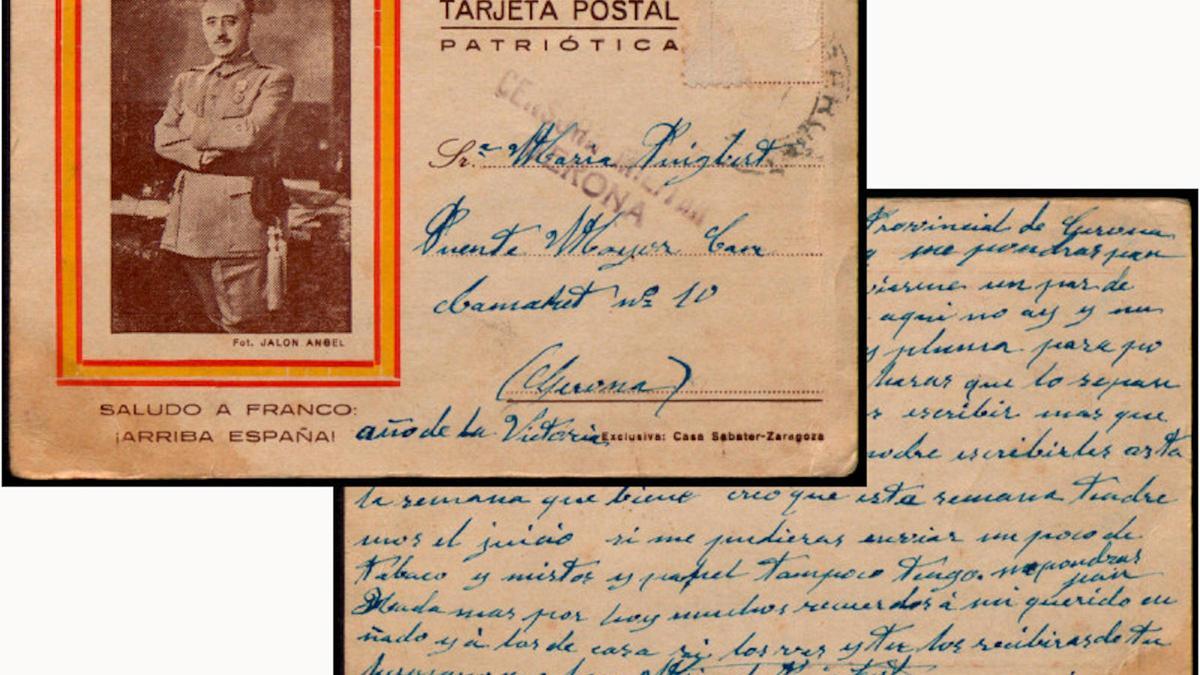 TARJETA POSTAL
PATRIÓTICA
CENSURA MILITAR
GERONA
Sr.ª Maria Puigbert
Puente Mayor Carr
nº 10
(Gerona)
Fot. JALON ANGEL
SALUDO A FRANCO:
¡ARRIBA ESPAÑA!
año de la Victoria
Exclusiva: Casa Sabater-Zaragoza
Provincial de Gerona
me pondras pan
un par de
aqui no ay y un
y pluma para po
haras que lo sepan
escribir mas que
podre escribirles asta
la semana que biene creo que esta semana tendre
mos el juicio si me pudieras enviar un poco de
tabaco y mistos y papel tampoco tengo me pondras
pan
Nada mas por hoy muchos recuerdos á mi querido cu
ñado y á los de casa si los ves y tu los recibiras de tu